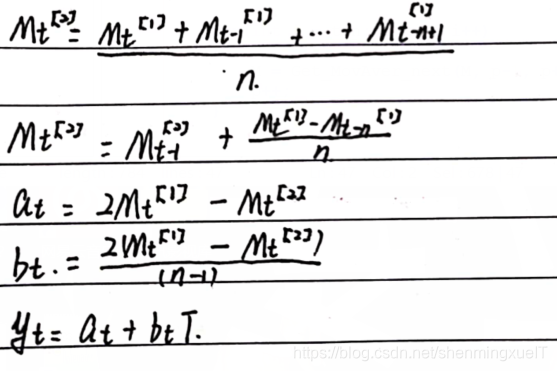 Mt^[2] = (Mt^[1] + Mt-1^[1] + ... + Mt-n+1^[1]) / n.
Mt^[2] = Mt-1^[2] + (Mt^[1] - Mt-n^[1]) / n
at = 2Mt^[1] - Mt^[2]
bt. = 2(Mt^[1] - Mt^[2]) / (n-1)
yt = at + btT.
https://blog.csdn.net/shenmingxueIT